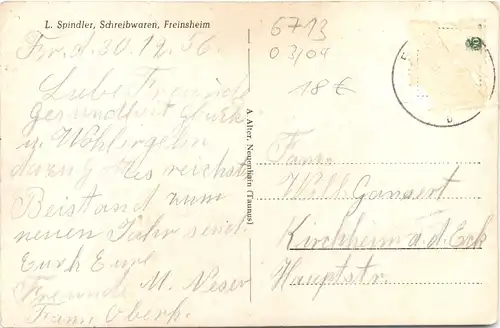 L. Spindler, Schreibwaren, Freinsheim
Fr. d. 30.12.56
Liebe Freunde
Gesundheit Glück
u. Wohlergehn
durch Gottes reichsten
Beistand zum
neuen Jahr send.
Euch Eure
Freunde M. Neser
Fam. Oberh.
A. Alter, Neuenhain (Taunus)
6713
03/04
18 €
Fam.
Wilh. Gansert
Kirchheim a. d. Eck
Hauptstr.